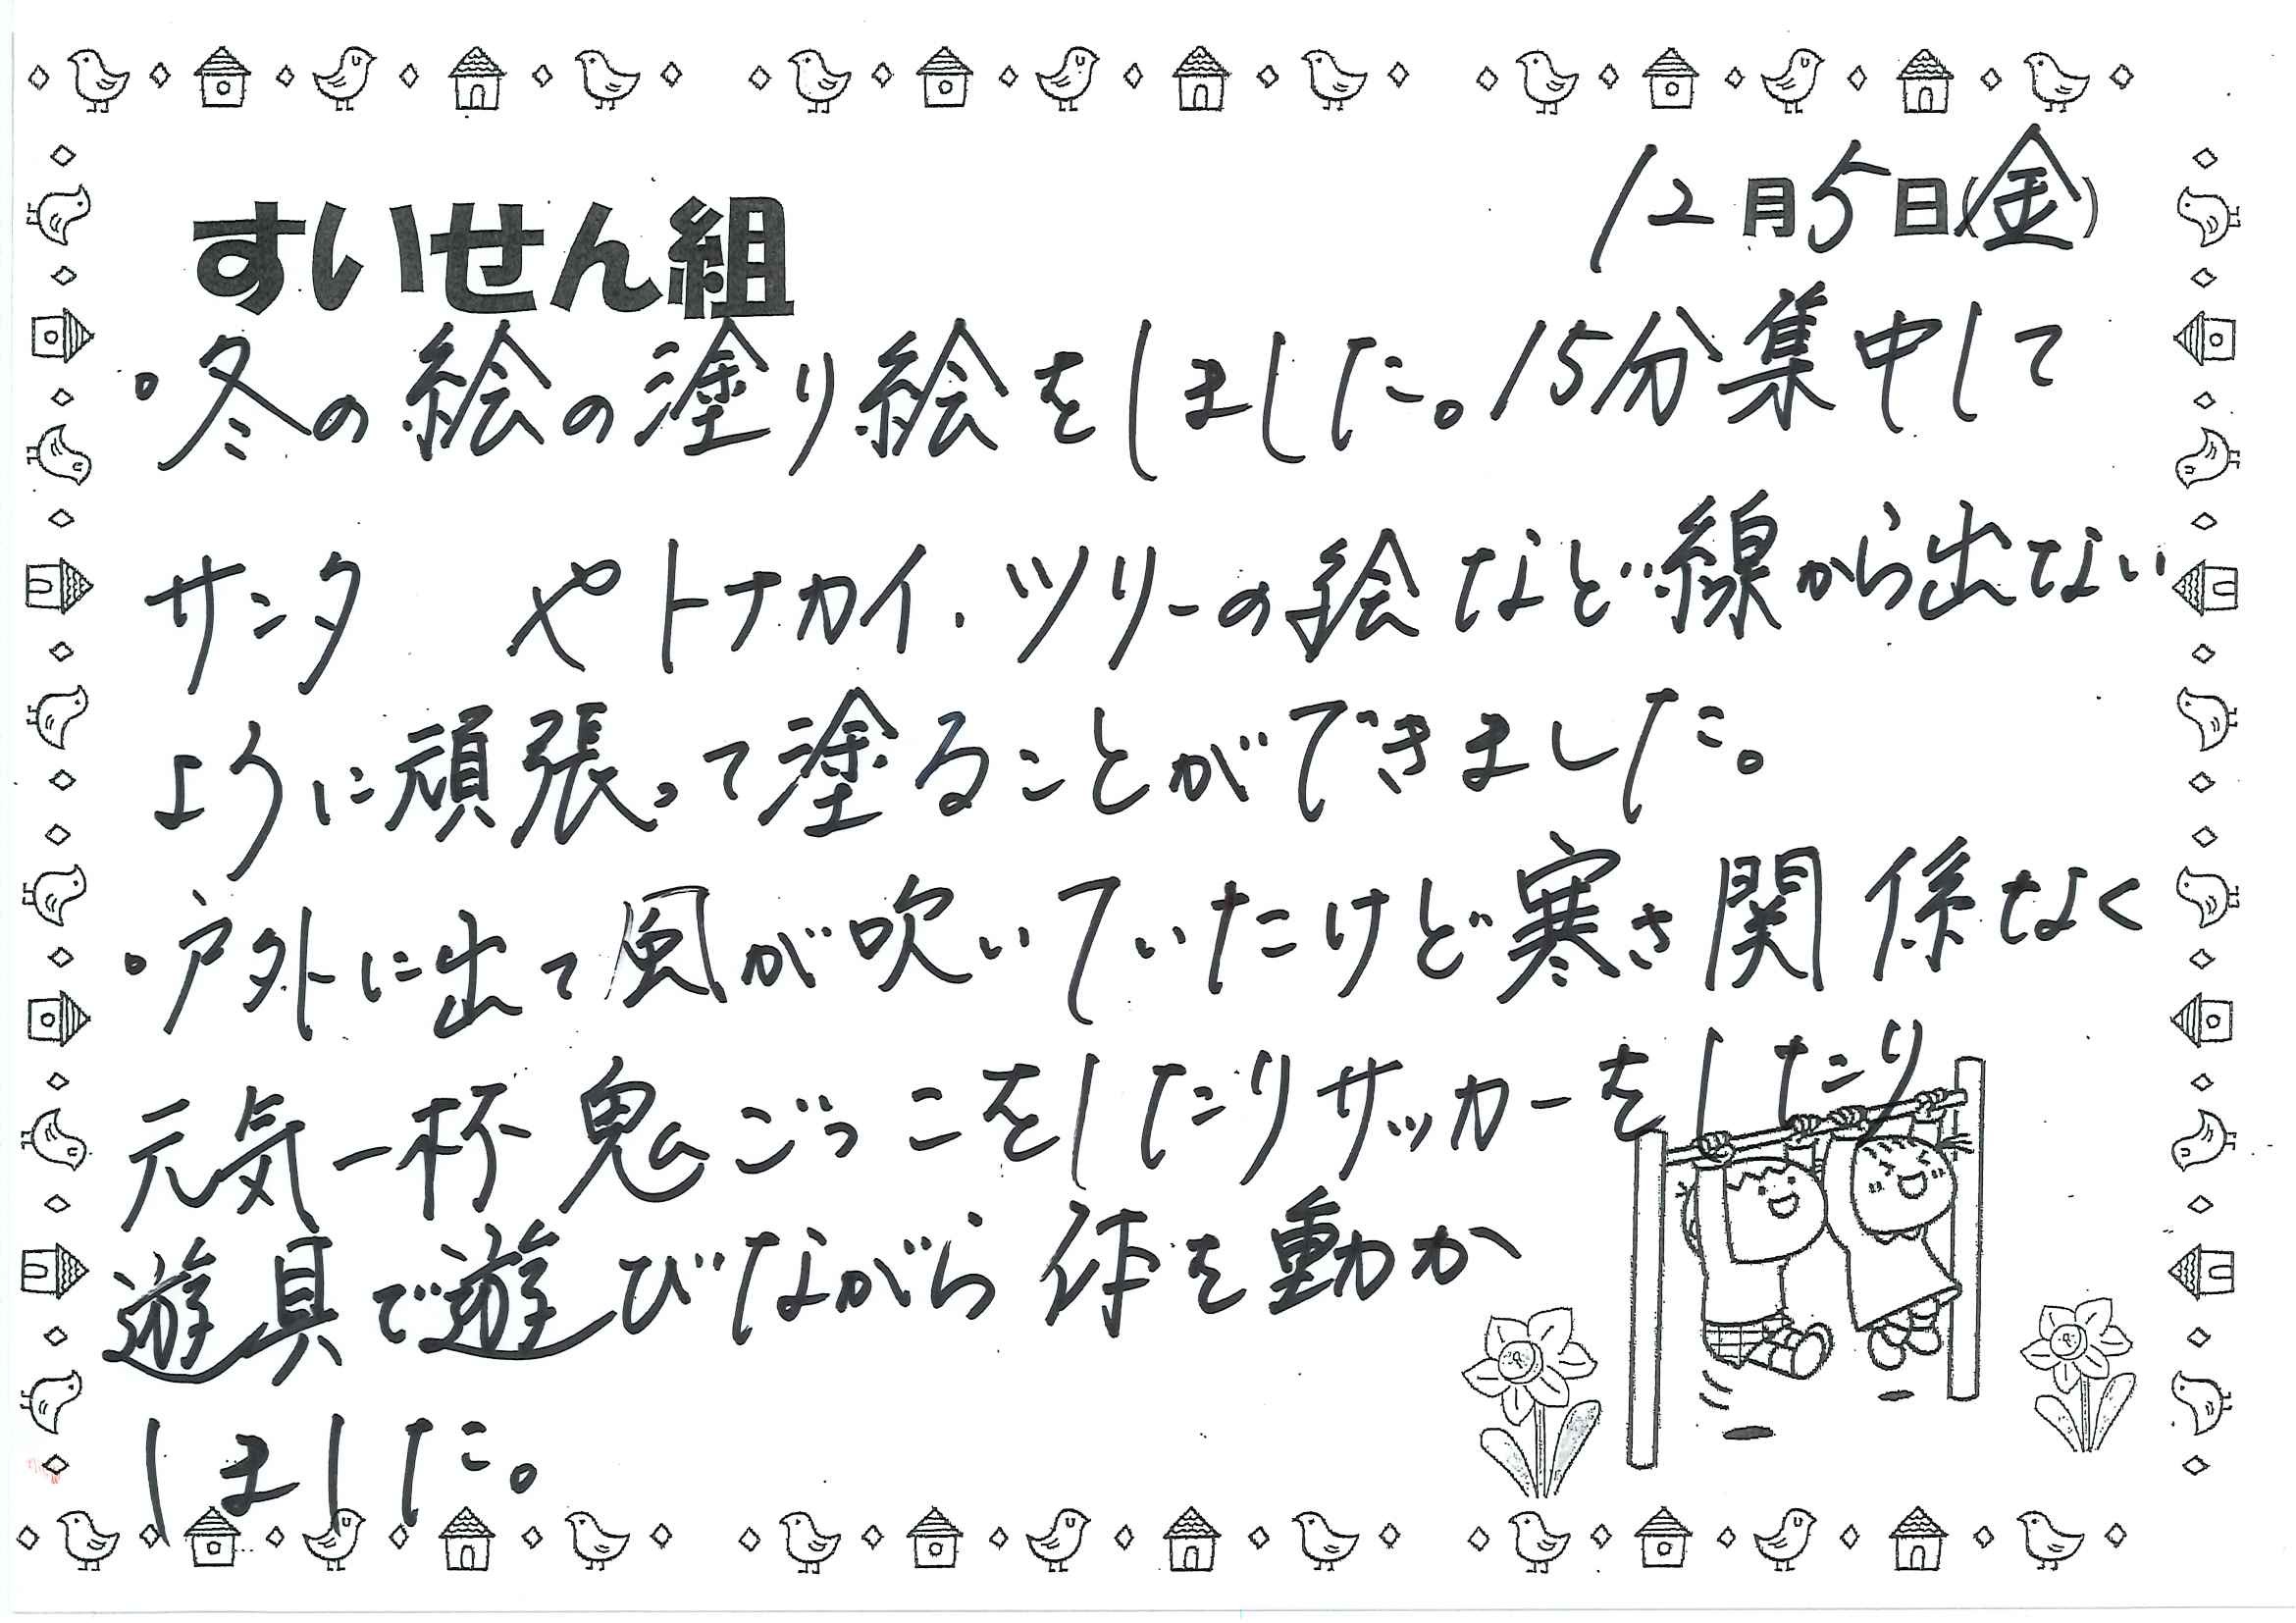 12月5日(金)
すいせん組
。冬の絵の塗り絵をしました。15分集中して
サンタ やトナカイ.ツリーの絵など線から出ない
ように頑張って塗ることができました。
。戸外に出て風が吹いていたけど寒さ関係なく
元気一杯鬼ごっこをしたりサッカーをしたり
遊具で遊びながら体を動か
しました。